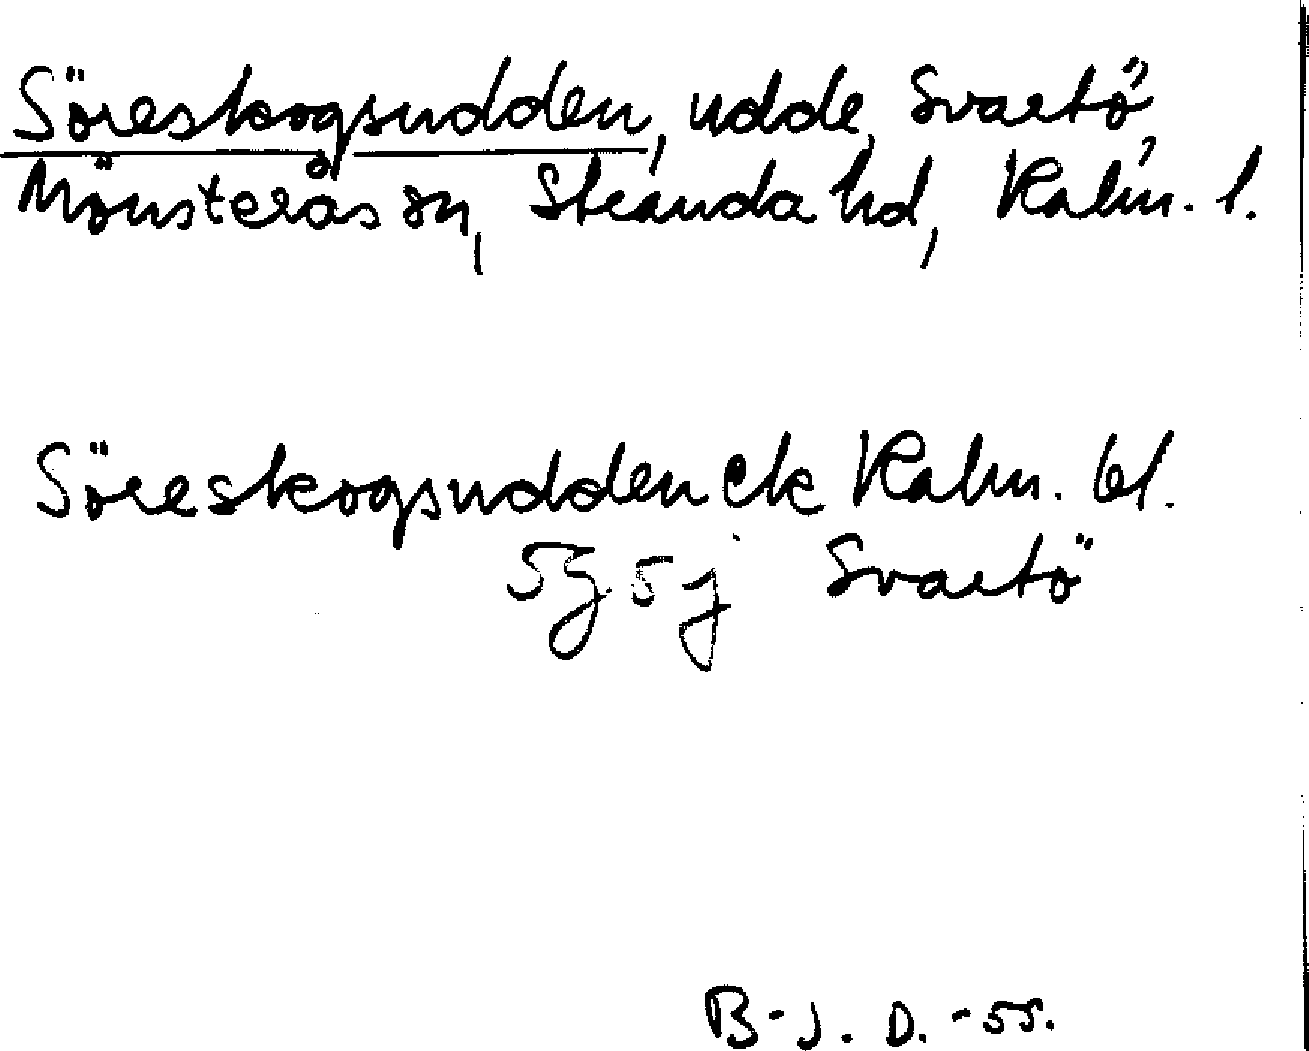 Söreskogsudden, udde, Svartö,
Mönsterås sn, Stranda hd, Kalm. l.
Söreskogsudden ek Kalm. bl.
5g 5j Svartö
B-J. D. -55.